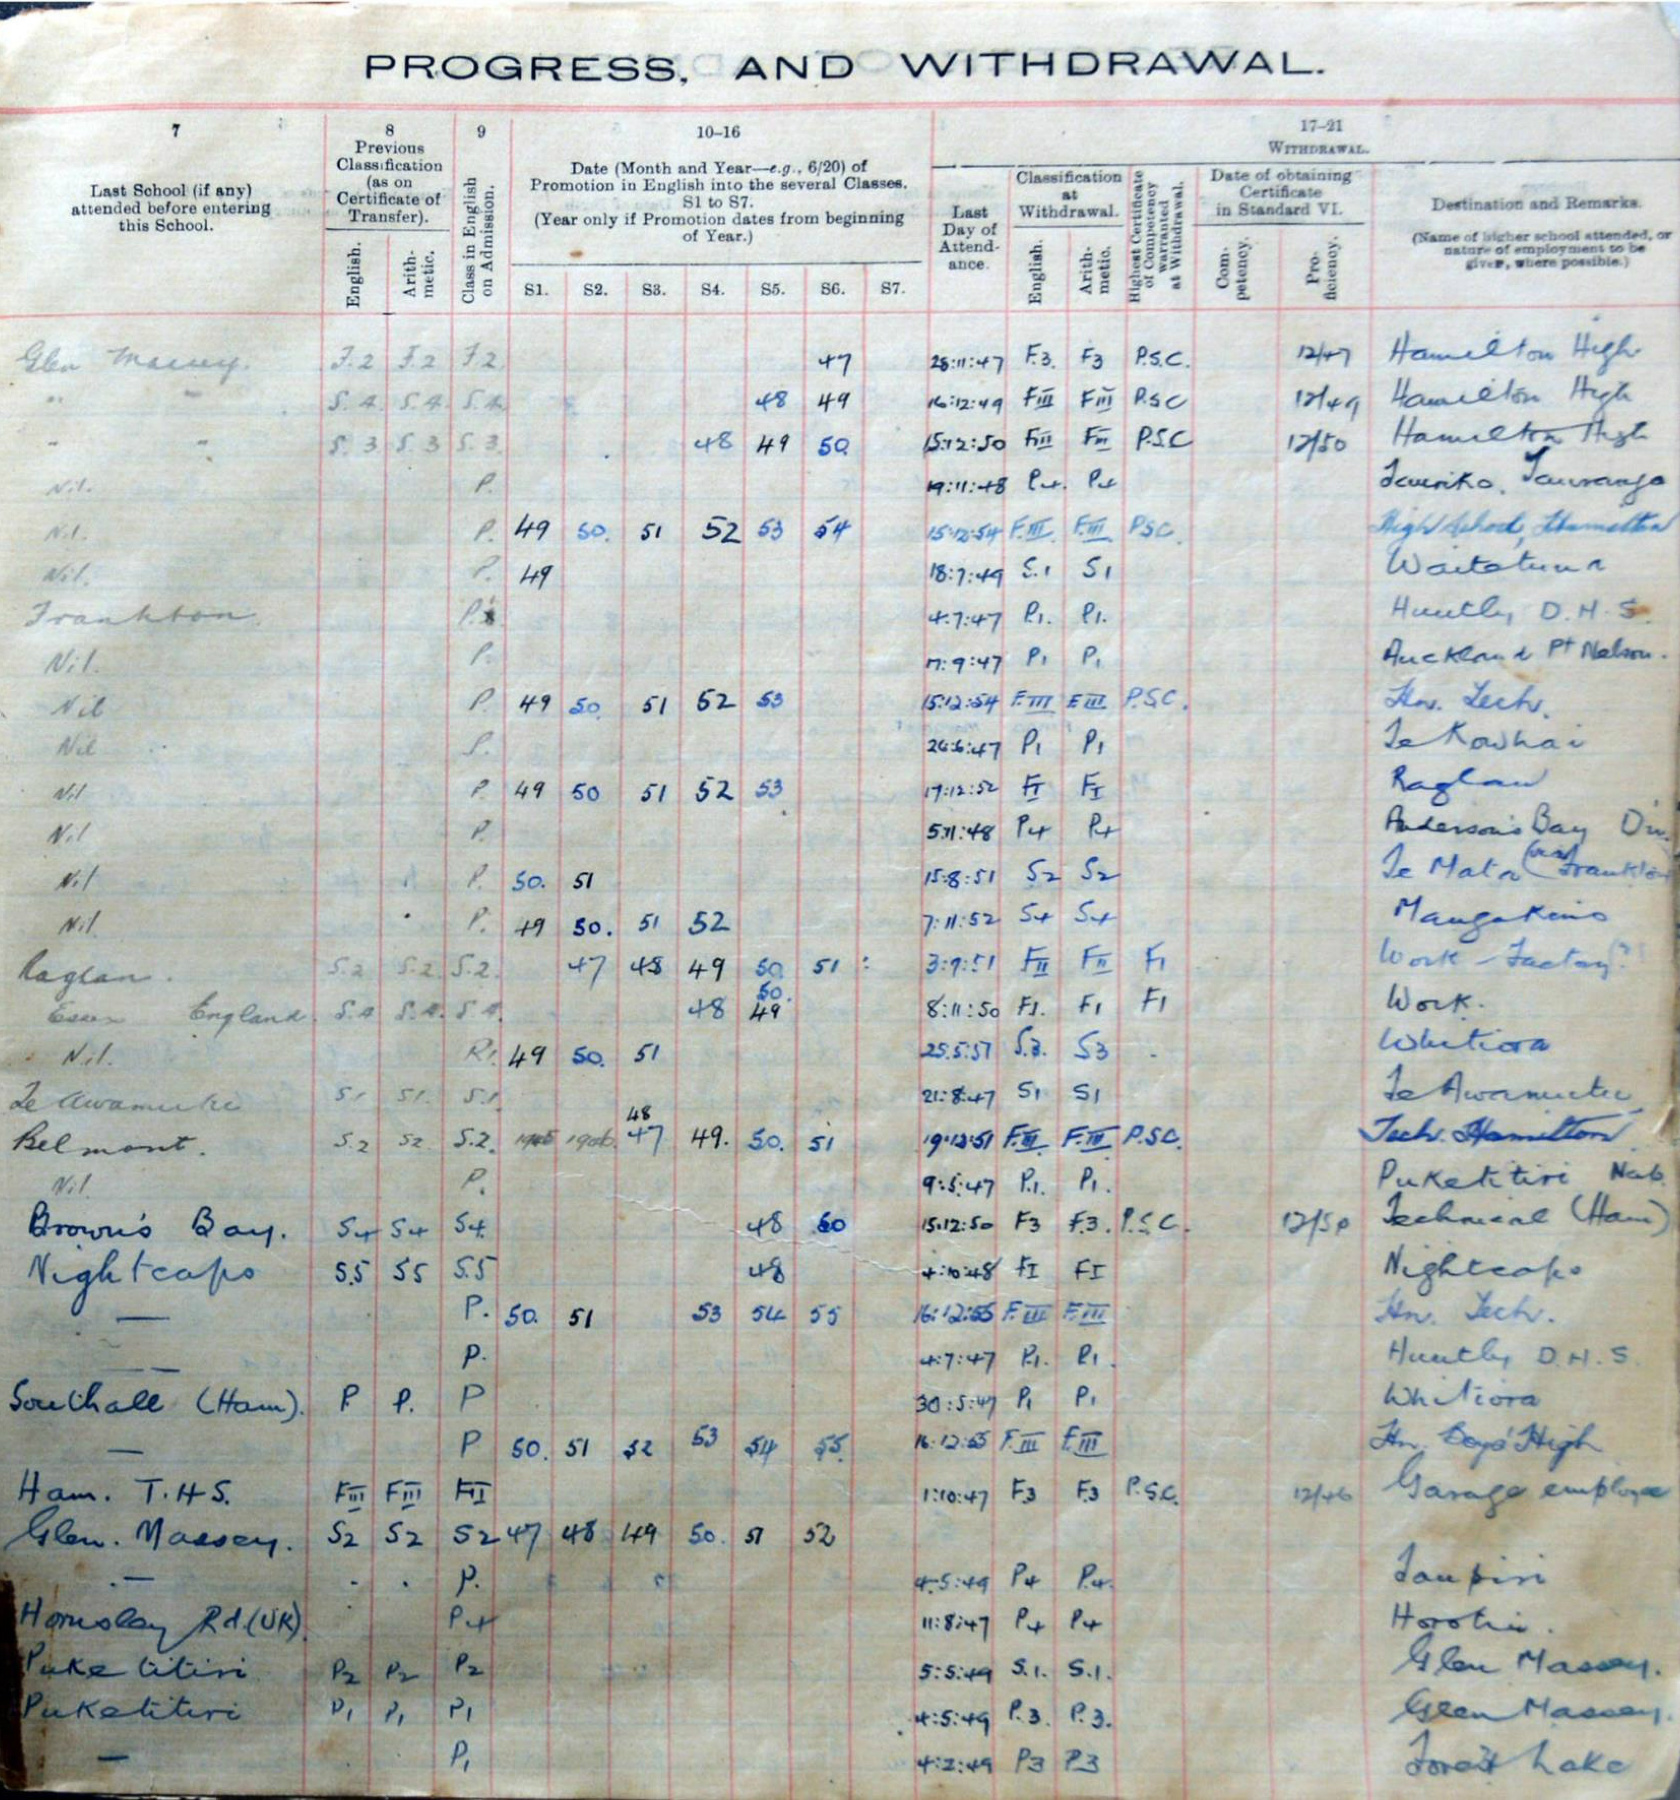 PROGRESS, AND WITHDRAWAL.
7 8 9 10–16 17–21
Last School (if any) attended before entering this School.
Previous Classification (as on Certificate of Transfer).
English. Arith-metic.
Class in English on Admission.
Date (Month and Year—e.g., 6/20) of Promotion in English into the several Classes, S1 to S7.
(Year only if Promotion dates from beginning of Year.)
S1. S2. S3. S4. S5. S6. S7.
WITHDRAWAL.
Last Day of Attend-ance.
Classification at Withdrawal.
English. Arith-metic.
Highest Certificate of Competency warranted at Withdrawal.
Date of obtaining Certificate in Standard VI.
Com-petency. Pro-ficiency.
Destination and Remarks.
(Name of higher school attended, or nature of employment to be given, where possible.)
Glen Massey. F.2 F.2 F.2 47 28:11:47 F.3. F3 P.S.C. 12/47 Hamilton High
" " S.4. S.4. S.4. 48 49 16:12:49 FIII FIII P.S.C 12/49 Hamilton High
" " S.3 S.3 S.3. 48 49 50. 15:12:50 FIII FIII P.S.C 12/50 Hamilton High
Nil. P. 19:11:48 P4. P4 Tauriko. Tauranga
Nil. P. 49 50. 51 52 53 54 15:12:54 F.III F.III P.S.C. High School, Hamilton
Nil. P. 49 18:7:49 S.1 S1 Waitetuna
Frankton. P. 4:7:47 P.1. P1. Huntly D.H.S.
Nil. P. 9:47 P1 P1 Auckland Pt Nelson.
Nil P. 49 50. 51 52 53 15:12:54 F.III F.III P.S.C. Hn. Tech.
Nil P. 26:6:47 P1 P1 Te Kowhai
Nil P. 49 50 51 52 53 17:12:52 FI FI Raglan
Nil P. 5:11:48 P4 P4 Anderson's Bay Dn.
Nil P. 50. 51 15:8:51 S2 S2 Te Mata (via Frankton
Nil. P. 49 50. 51 52 7:11:52 S4 S4 Mangakino
Raglan. S.2 S.2 S.2. 47 48 49 50. 51 3:9:51 FII FII F1 Work - Factory?
Essex England. S.4 S.4. S.4. 48 49 50. 8:11:50 F1. F1 F1 Work.
Nil. P1 49 50. 51 25:5:51 S.3. S3 Whitiora
Te Awamutu S1 S1. S.1. 21:8:47 S1 S1 Te Awamutu
Belmont. S.2 S2. S.2. 1945 1946. 47 48 49. 50. 51 19:12:51 F.III F.III P.S.C. Tech. Hamilton
Nil. P. 9:5:47 P.1. P1. Puketitiri
Brown's Bay. S4 S4 S4. 48 50 15:12:50 F3 F3. P.S.C. 12/50 Technical (Ham)
Nightcaps S5 S5 S.5 48 4:10:48 FI FI Nightcaps
— P. 50. 51 53 54 55 16:12:55 F.III F.III Hn. Tech.
— P. 4:7:47 P.1. P.1. Huntly D.H.S.
Southall (Ham). P P. P 30:5:47 P1 P1 Whitiora
— P 50. 51 52 53 54 55. 16:12:55 F.III F.III Hn. Boys' High
Ham. T.H.S. FIII FIII FIII 1:10:47 F3 F3 P.S.C. 12/46 Garage employee
Glen. Massey. S2 S2 S2 47 48 49 50. 51 52
— P. 4:5:49 P4 P4. Taupiri
Rd. (UK). P4 11:8:47 P4 P4 Horotiu.
Puketitiri P2 P2 P2 5:5:49 S.1. S.1. Glen Massey.
Puketitiri P1 P1 P1 4:5:49 P.3. P.3. Glen Massey.
— P1 4:2:49 P3 P3 Forest Lake